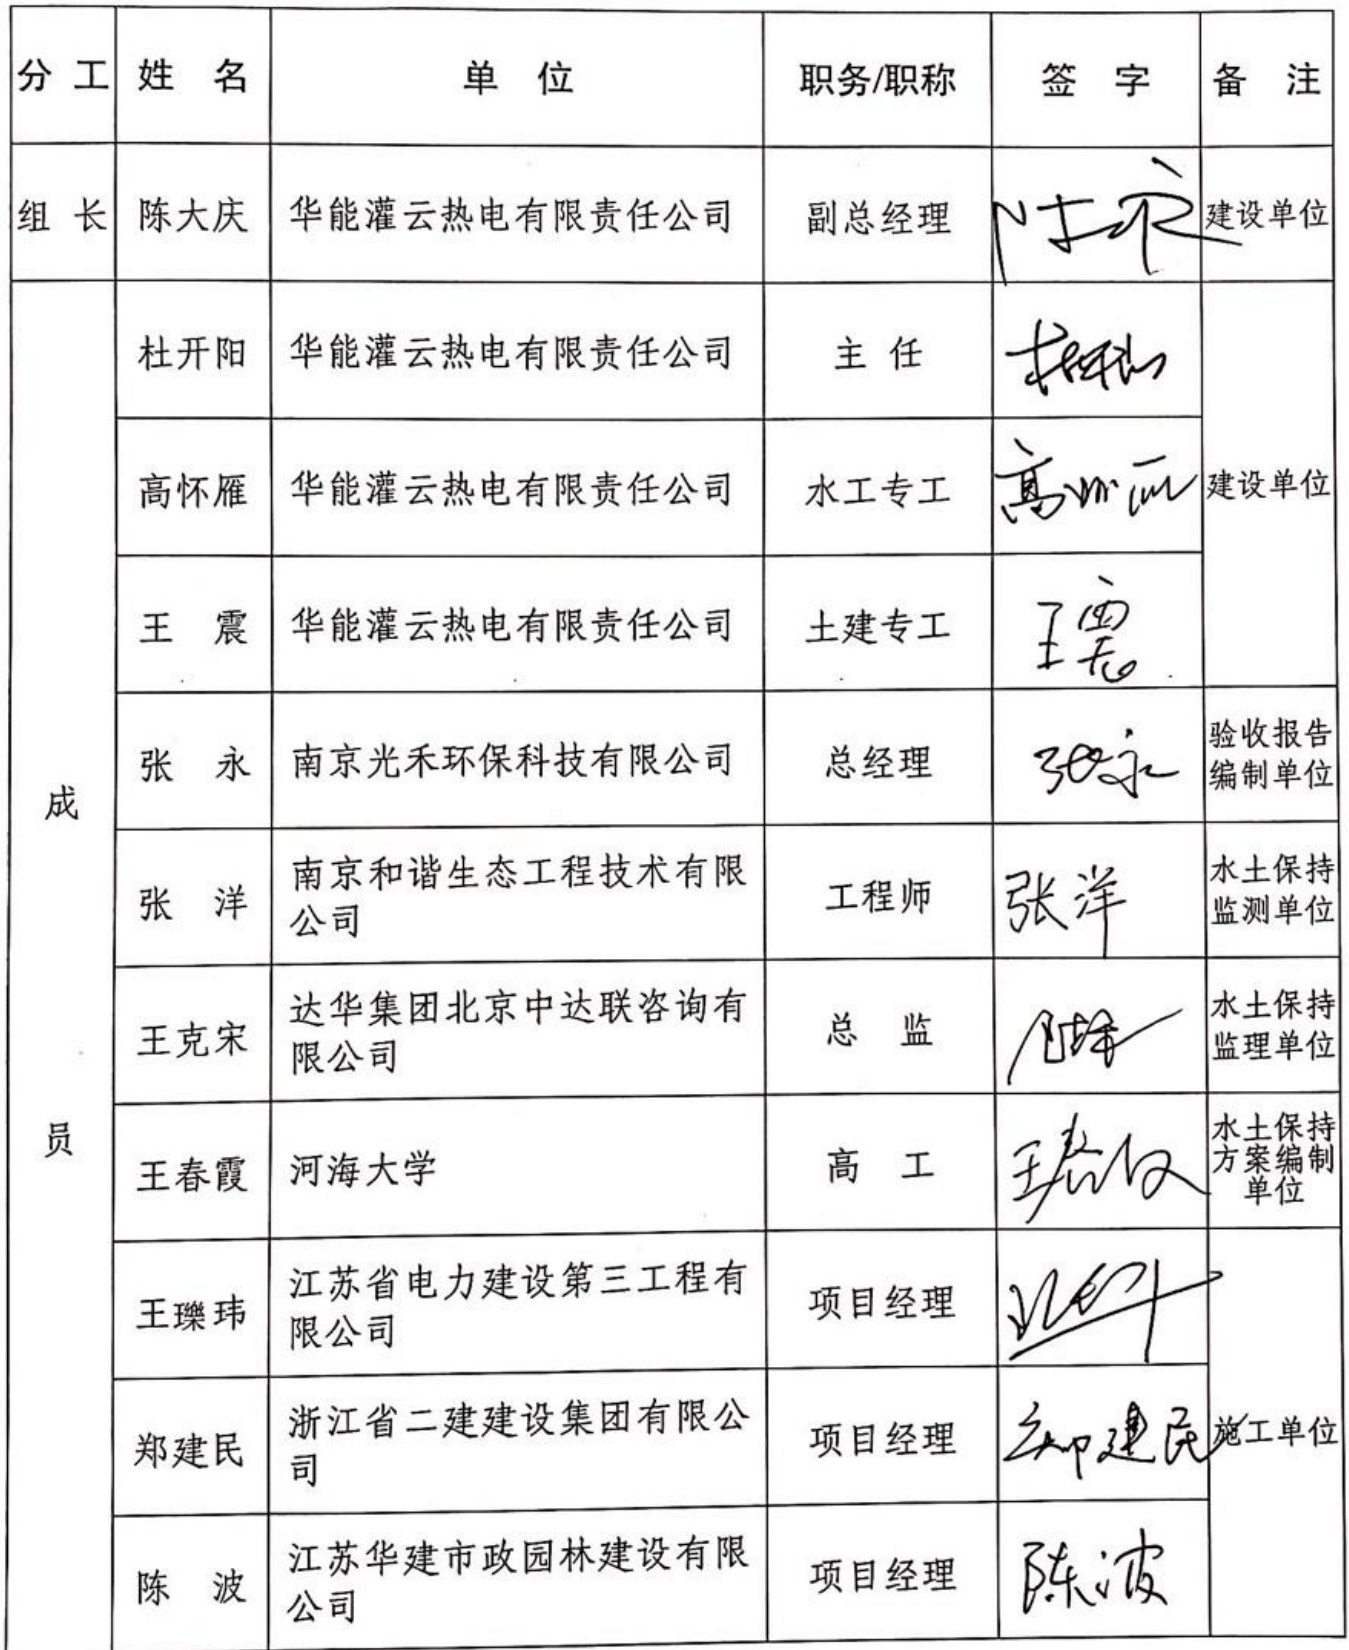 分 工 姓 名 单 位 职务/职称 签 字 备 注
组 长 陈大庆 华能灌云热电有限责任公司 副总经理 建设单位
成
员
杜开阳 华能灌云热电有限责任公司 主 任
高怀雁 华能灌云热电有限责任公司 水工专工 高怀雁 建设单位
王 震 华能灌云热电有限责任公司 土建专工 王震
张 永 南京光禾环保科技有限公司 总经理 张永 验收报告
编制单位
张 洋 南京和谐生态工程技术有限
公司 工程师 张洋 水土保持
监测单位
王克宋 达华集团北京中达联咨询有
限公司 总 监 水土保持
监理单位
王春霞 河海大学 高 工 王春霞 水土保持
方案编制
单位
王瓅玮 江苏省电力建设第三工程有
限公司 项目经理
郑建民 浙江省二建建设集团有限公
司 项目经理 郑建民 施工单位
陈 波 江苏华建市政园林建设有限
公司 项目经理 陈波